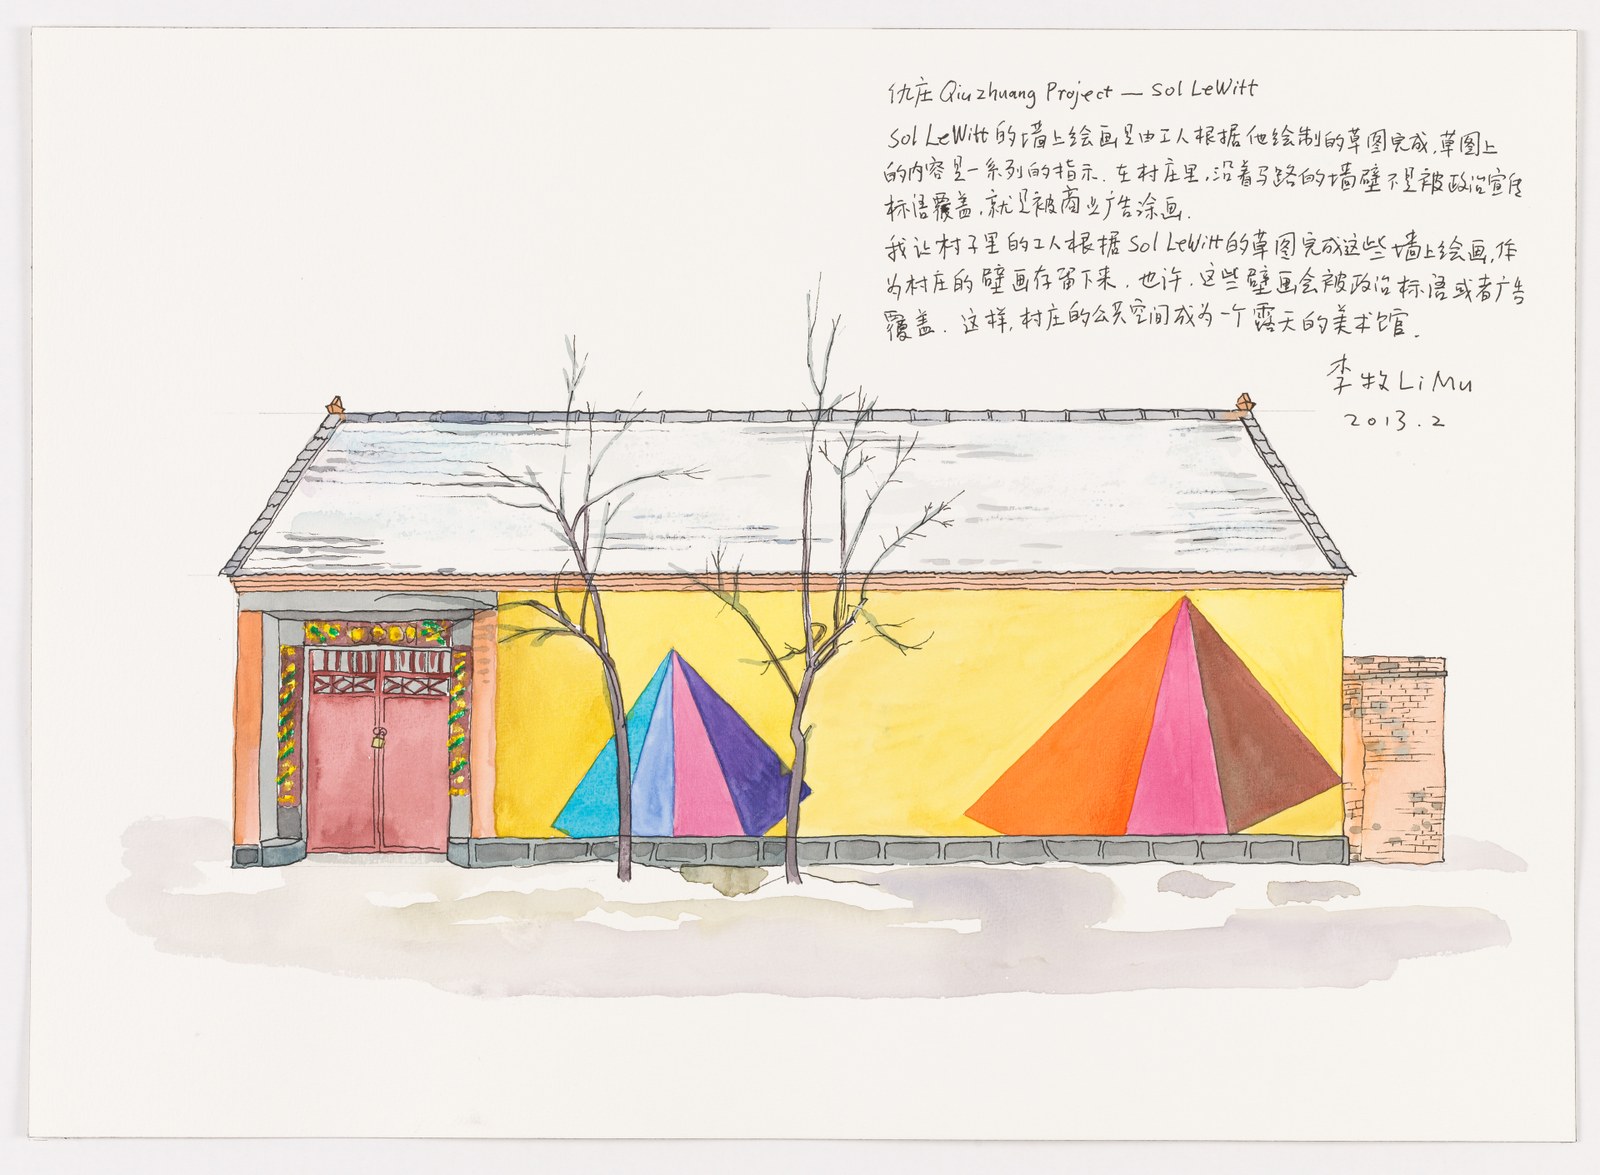 仇庄 Qiuzhuang Project — Sol LeWitt
Sol LeWitt的墙上绘画是由工人根据他绘制的草图完成.草图上
的内容是一系列的指示. 在村庄里,沿着马路的墙壁不是被政治宣传
标语覆盖,就是被商业广告涂画.
我让村子里的工人根据Sol LeWitt的草图完成这些墙上绘画,作
为村庄的壁画存留下来. 也许,这些壁画会被政治标语或者广告
覆盖. 这样,村庄的公共空间成为一个露天的美术馆.
李牧 Li Mu
2013.2